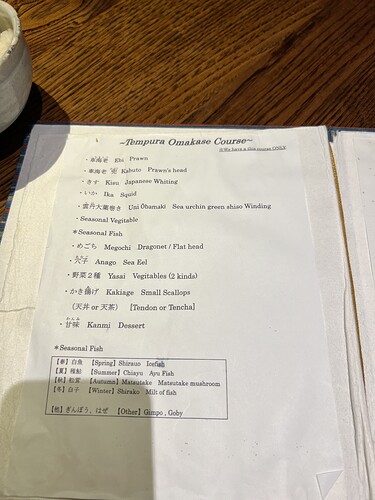 ~Tempura Omakase Course~
※We have a this course ONLY.
・車海老 Ebi Prawn
・車海老 頭 Kabuto Prawn's head
・きす Kisu Japanese Whiting
・いか Ika Squid
・雲丹大葉巻き Uni Obamaki Sea urchin green shiso Winding
・Seasonal Vegitable
＊Seasonal Fish
・めごち Megochi Dragonet / Flat head
・穴子 Anago Sea Eel
・野菜２種 Yasai Vegitables (2 kinds)
・かき揚げ Kakiage Small Scallops
（天丼 or 天茶） [Tendon or Tencha]
・甘味 Kanmi Dessert
＊Seasonal Fish
【春】白魚 【Spring】Shirauo Icefish
【夏】稚鮎 【Summer】Chiayu Ayu Fish
【秋】松茸 【Autumn】Matsutake Matsutake mushroom
【冬】白子 【Winter】Shirako Milt of fish
【他】ぎんぽう、はぜ 【Other】Gimpo , Goby